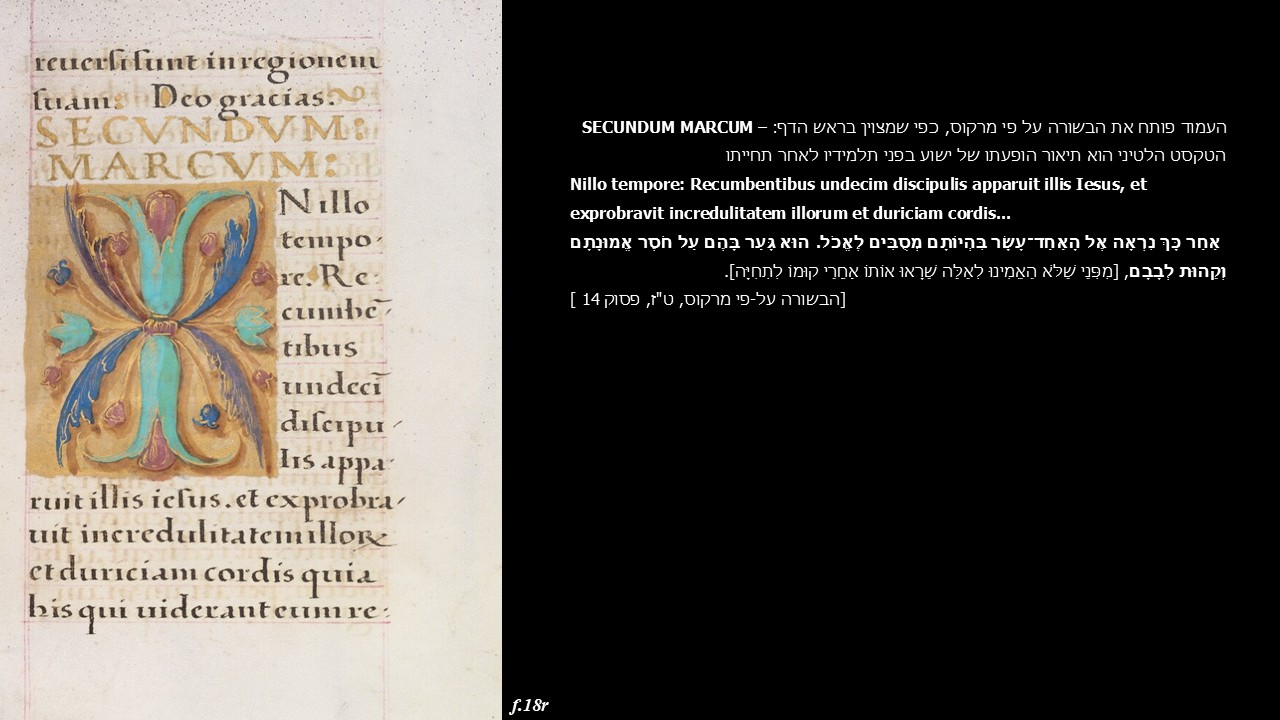 reuersi sunt in regionem
suam: Deo gracias.
SECVNDVM:
MARCVM:
Nillo
tempo-
re. Re-
cumbē-
tibus
undecī
discipu-
lis appa-
ruit illis iesus. et exprobra-
uit incredulitatem illoꝝ
et duriciam cordis quia
his qui uiderant eum re-
העמוד פותח את הבשורה על פי מרקוס, כפי שמצוין בראש הדף: – SECUNDUM MARCUM
הטקסט הלטיני הוא תיאור הופעתו של ישוע בפני תלמידיו לאחר תחייתו
Nillo tempore: Recumbentibus undecim discipulis apparuit illis Iesus, et
exprobravit incredulitatem illorum et duriciam cordis...
אַחַר כָּךְ נִרְאָה אֶל הָאַחַד־עָשָׂר בִּהְיוֹתָם מְסֻבִּים לֶאֱכֹל. הוּא גָּעַר בָּהֶם עַל חֹסֶר אֱמוּנָתָם
וְקֵהוּת לְבָבָם, [מִפְּנֵי שֶׁלֹּא הֶאֱמִינוּ לְאֵלֶּה שֶׁרָאוּ אוֹתוֹ אַחֲרֵי קוּמוֹ לִתְחִיָּה].
[הבשורה על-פי מרקוס, ט"ז, פסוק 14 ]
f.18r